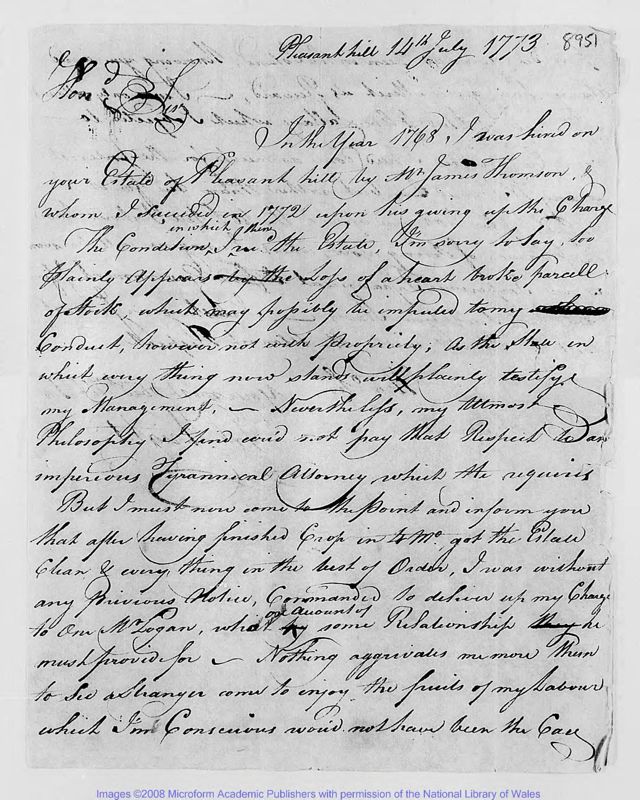 8951
Pleasant hill 14th July 1773
Hon.d Sir
In the Year 1768, I was hired on
your Estate of Pleasant hill by Mr. James Thomson,
whom I succeded in 1772 upon his giving up the Charge
in which I then
The Condition, I rec.d the Estate, I'm sorry to say, too
plainly appears by the Loss of a heart broke parcell
of stock, which may possibly be imputed to my
Conduct, however not with propriety; As the State in
which every thing now stands will plainly testifye
my Management, — Nevertheless, my Utmost
Philosophy I find cou'd not pay that Respect to an
imperious Tyrannical Attorney which He requires
But I must now come to the point and inform you
that after having finished Crop in 4 Mo. got the Estate
Clean & every thing in the best of Order, I was without
any Previous Notice, Commanded to deliver up my Charge
on account of
to One Mr. Logan, what by some Relationship they he
must provide for — Nothing aggrivates me more then
to See a Stranger come to enjoy the fruits of my Labour
which I'm Conscious wou'd not have been the Case
Images ©2008 Microform Academic Publishers with permission of the National Library of Wales